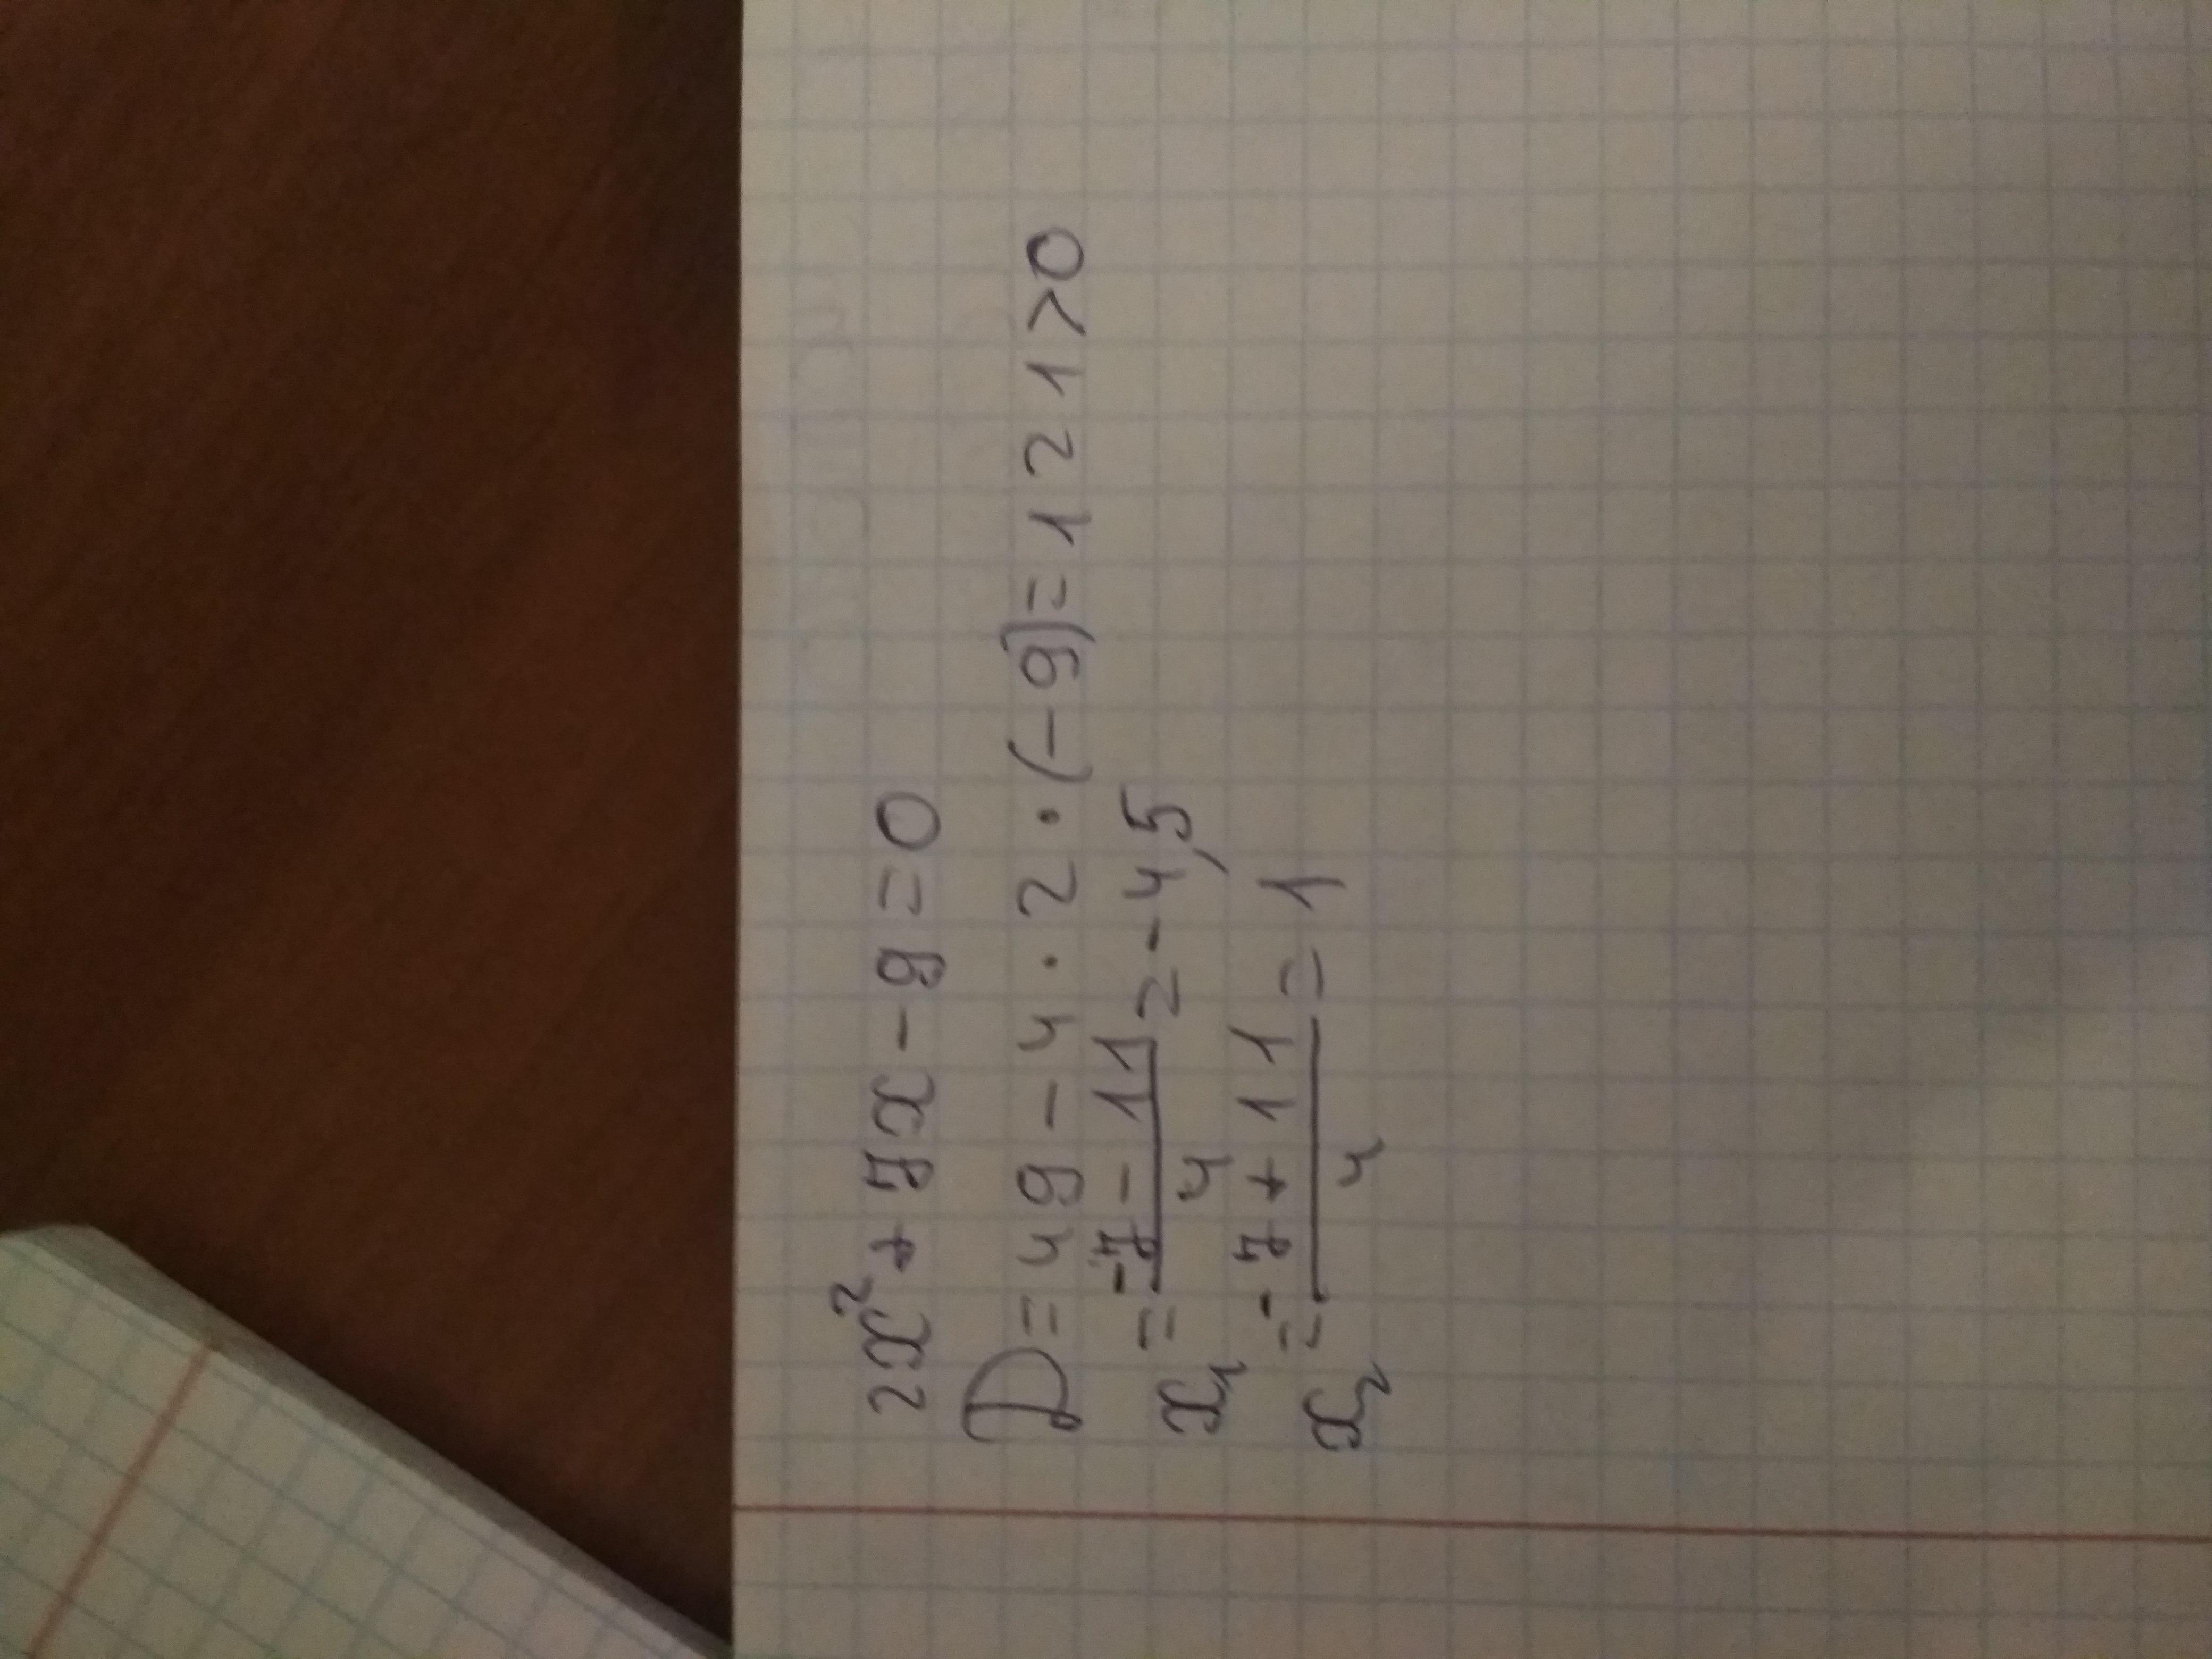 2x² + 7x - 9 = 0
D = 49 - 4 · 2 · (-9) = 121 > 0
x₁ = (-7 - 11)/4 = -4,5
x₂ = (-7 + 11)/4 = 1